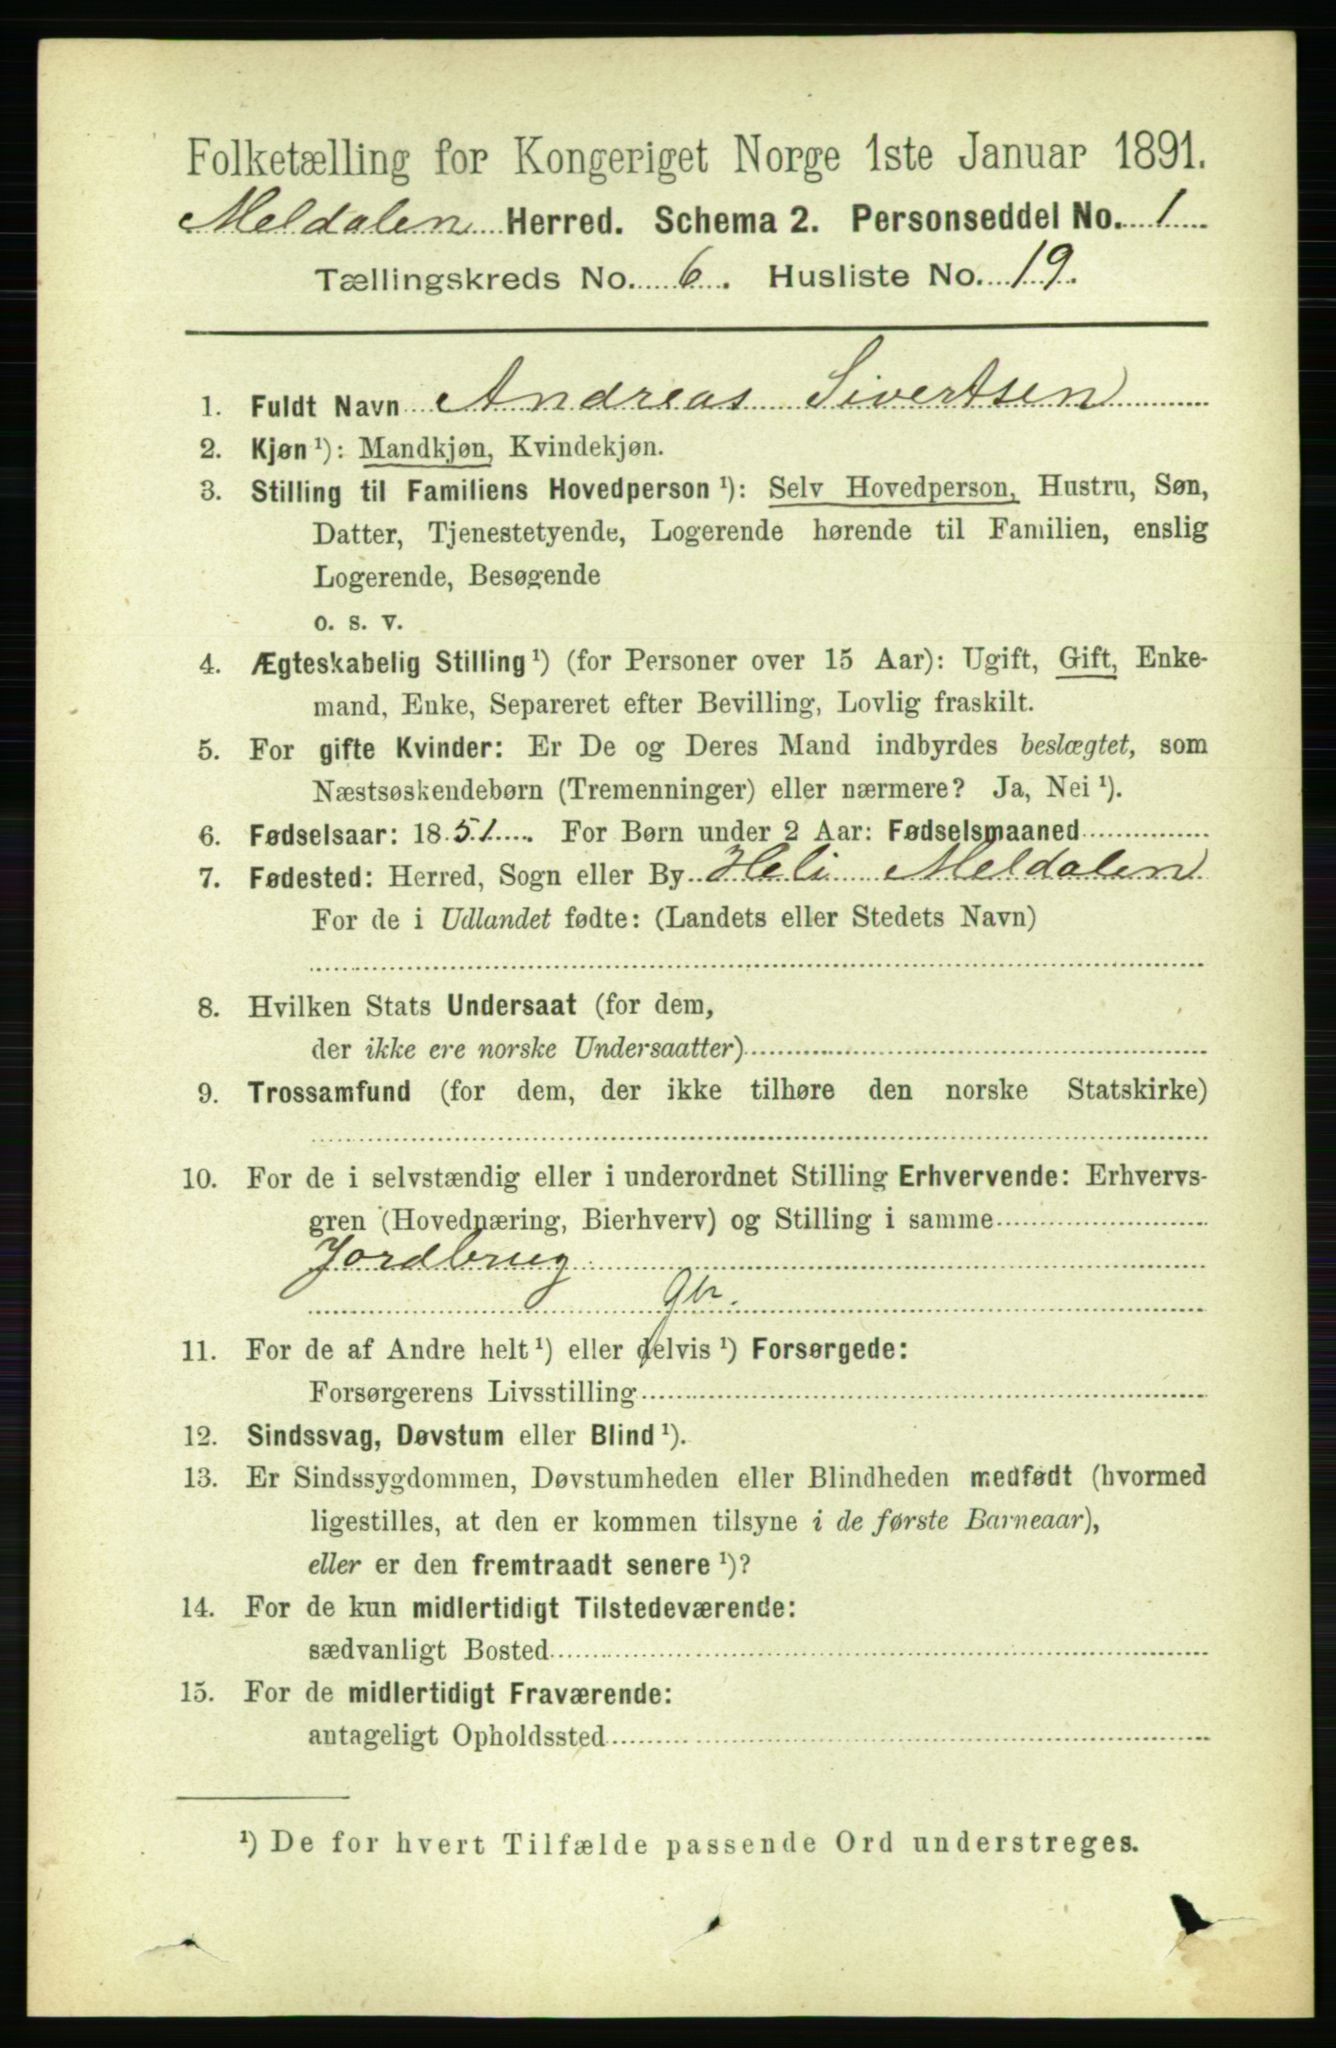 Folketælling for Kongeriget Norge 1ste Januar 1891.
Meldalen Herred. Schema 2. Personseddel No. 1
Tællingskreds No. 6. Husliste No. 19.
1. Fuldt Navn Andreas Sivertsen
2. Kjøn ¹): Mandkjøn, Kvindekjøn.
3. Stilling til Familiens Hovedperson ¹): Selv Hovedperson, Hustru, Søn,
Datter, Tjenestetyende, Logerende hørende til Familien, enslig
Logerende, Besøgende
o. s. v.
4. Ægteskabelig Stilling ¹) (for Personer over 15 Aar): Ugift, Gift, Enke-
mand, Enke, Separeret efter Bevilling, Lovlig fraskilt.
5. For gifte Kvinder: Er De og Deres Mand indbyrdes beslægtet, som
Næstsøskendebørn (Tremenninger) eller nærmere? Ja, Nei ¹).
6. Fødselsaar: 1851. For Børn under 2 Aar: Fødselsmaaned
7. Fødested: Herred, Sogn eller By Meldalen
For de i Udlandet fødte: (Landets eller Stedets Navn)
8. Hvilken Stats Undersaat (for dem,
der ikke ere norske Undersaatter)
9. Trossamfund (for dem, der ikke tilhøre den norske Statskirke)
10. For de i selvstændig eller i underordnet Stilling Erhvervende: Erhvervs-
gren (Hovednæring, Bierhverv) og Stilling i samme
Jordbrug
11. For de af Andre helt ¹) eller delvis ¹) Forsørgede:
Forsørgerens Livsstilling
12. Sindssvag, Døvstum eller Blind ¹).
13. Er Sindssygdommen, Døvstumheden eller Blindheden medfødt (hvormed
ligestilles, at den er kommen tilsyne i de første Barneaar),
eller er den fremtraadt senere ¹)?
14. For de kun midlertidigt Tilstedeværende:
sædvanligt Bosted
15. For de midlertidigt Fraværende:
antageligt Opholdssted
¹) De for hvert Tilfælde passende Ord understreges.